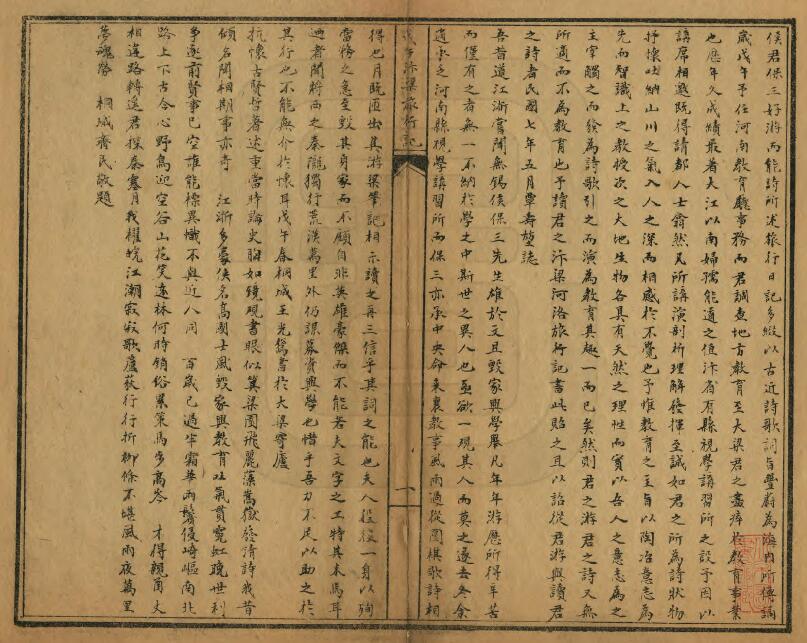 侯君保三好游而能詩所述旅行日記多綴以古近詩歌詞旨豐蔚為海內所傳誦
歲戊午予任河南教育廳事務而君調查地方教育至大梁君之盡瘁於教育事業
也歷年久成績最著大江以南婦孺能道之值汴省有縣視學講習所之設予因以
講席相邀既得請都人士翕然凡所講演剖析理解發揮至誠如君之所為詩狀物
抒懷吐納山川之氣入人之深而相感於不覺也予惟教育之主旨以陶冶意志為
先而智識上之教授次之大地生物各具有天然之理性而實以吾人之意志為之
主宰觸之而發為詩歌引之而演為教育其趣一而已矣然則君之游君之詩又無
所適而不為教育也予讀君之汴梁河洛旅行記書此貽之且以諗從君游與讀君
之詩者民國七年五月覃壽堃誌
吾昔道江浙嘗聞無錫侯保三先生雄於文且毀家興學舉凡年年游歷所得辛苦
而僅有之者無一不納於學之中斯世之異人也亟欲一現其人而莫之遂去冬余
適承乏河南縣視學講習所而保三亦承中央命來襄教事風雨過從圍棋歌詩相
得也月既匝出其游梁筆記相示讀之再三信乎其詞之能也夫人役役一身以殉
當務之急至毀其身家而不顧自非英雄豪傑而不能若夫文字之工特其末焉耳
迺者聞將西之秦隴獨行荒漠萬里外仍謀募資興學也惜乎吾力不足以助之於
其行也不能無介於懷耳戊午春桐城王光鸞書於大梁寄廬
抗懷古賢哲著述重當時論史胸如鏡觀書眼似箕梁園飛麗藻嵩嶽發清詩我昔
傾名聞相期事亦奇　江浙多豪俠名高國士風毀家興教育吐氣貫霓虹晚世利
爭逐前賢事已空誰能標異幟不與近人同　百歲已過半霜華兩鬢侵崎嶇南北
路上下古今心野鳥迎空谷山花笑遠林何時銷俗累策馬多高岑　才得親簡丈
相違路轉遙君探秦塞月我櫂皖江潮寂寂歌蘆荻行行折柳條不堪風雨夜萬里
夢魂勞　桐城齊民敬題